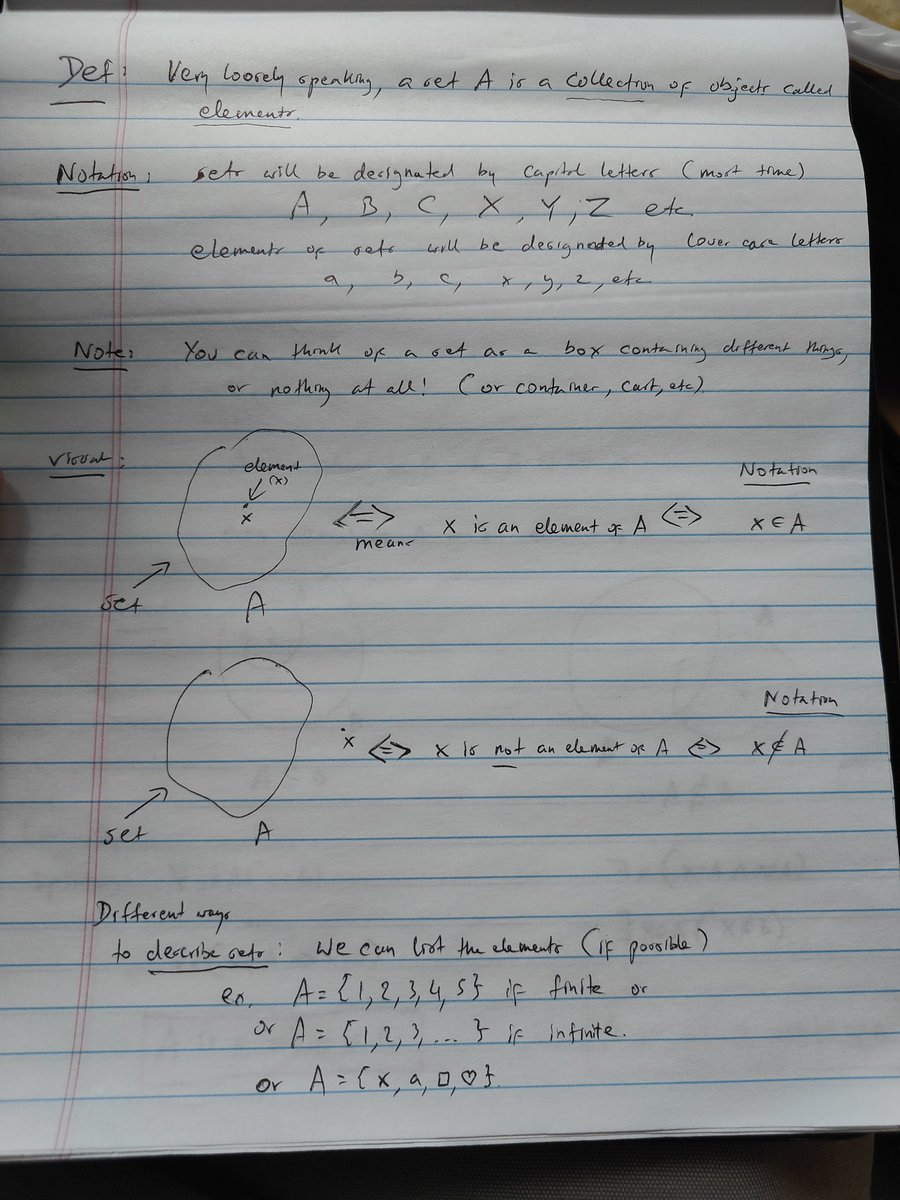 Def: Very loosely speaking, a set A is a collection of objects called
elements.
Notation: sets will be designated by capitol letters (most time)
A, B, C, X, Y, Z etc
elements of sets will be designated by lower case letters
a, b, c, x, y, z, etc
Note: You can think of a set as a box containing different things,
or nothing at all! (or container, cart, etc).
Visual:
element
(x)
x
set
A
<=>
means
x is an element of A <=>
Notation
x ∈ A
set
A
x <=> x is not an element of A <=>
Notation
x ∉ A
Different ways
to describe sets: We can list the elements (if possible)
ex. A = {1, 2, 3, 4, 5} if finite or
or A = {1, 2, 3, ... } if infinite.
or A = {x, a, □, ♡}.